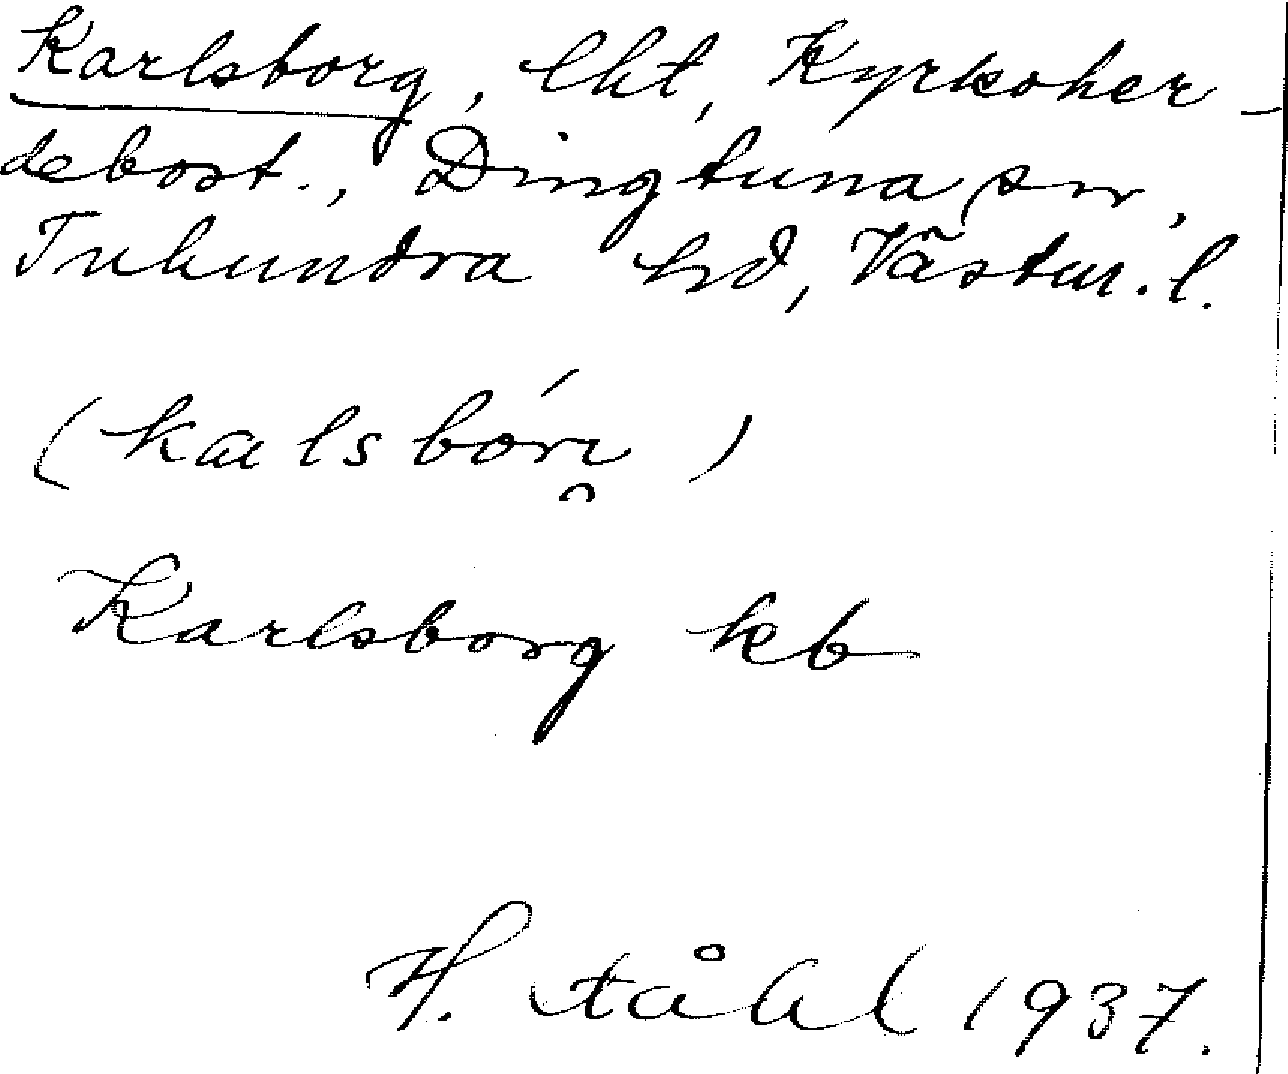 Karlsborg, lht, Kyrkoher-
debost., Dingtuna sn,
Tuhundra hd, Västm. l.
Karlsborg kb
H. Ståhl 1937.